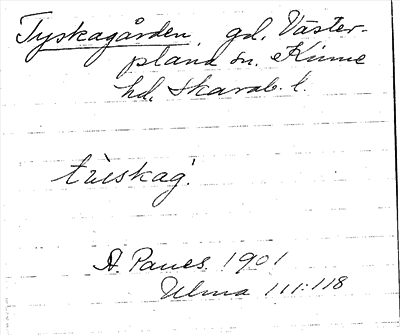 Tyskagården, gd, Väster-
plana sn. Kinne
hd, Skarab. l.
A. Palles 1901
Ulma 111:118